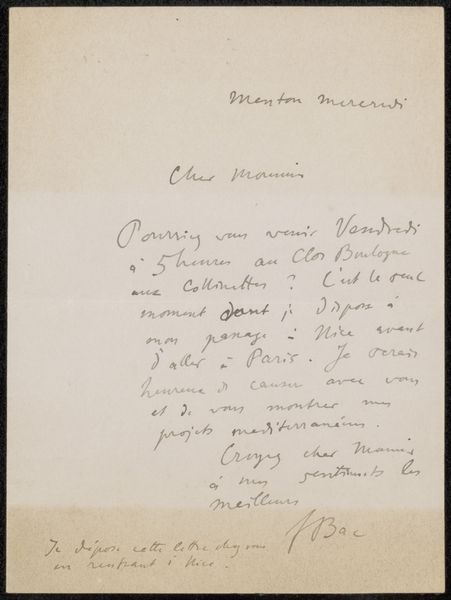 Menton mercredi
Cher Monsieur
Pourriez vous venir Vendredi
à 5 heures au Clos Boulogne
aux Collinettes ? C'est le seul
moment dont je dispose à
mon passage à Nice avant
d'aller à Paris. Je serais
heureux de causer avec vous
et de vous montrer mes
projets mediterranéens.
Croyez cher Monsieur
à mes sentiments les
meilleurs
FBac
Je dépose cette lettre chez vous
en rentrant à Nice.